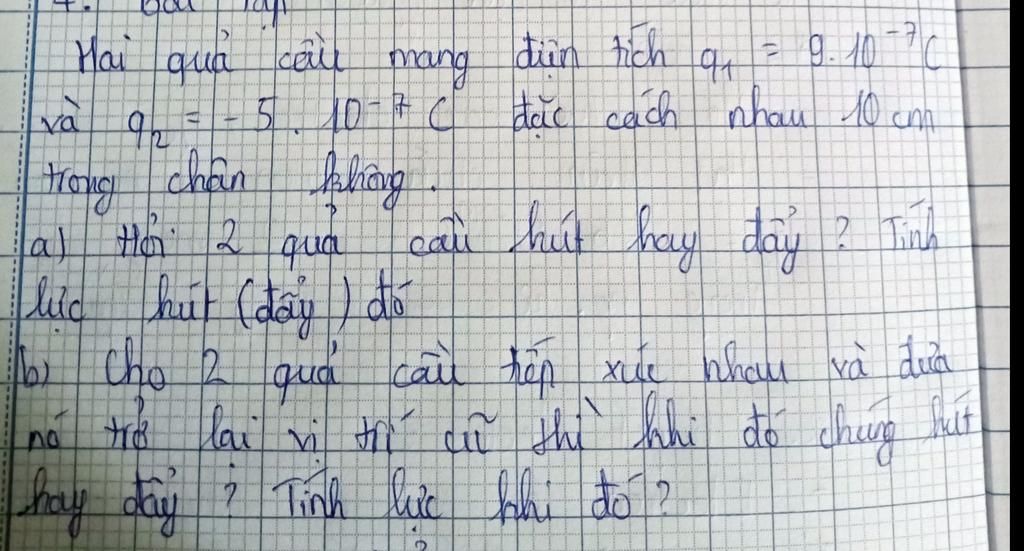 4. Bài tập
Hai quả cầu mang điện tích q₁ = 9.10⁻⁷C
và q₂ = -5.10⁻⁷C đặc cách nhau 10 cm
trong chân không.
a) Hỏi 2 quả cầu hút hay đẩy? Tính
lực hút (đẩy) đó
b) Cho 2 quả cầu tiếp xúc nhau và đưa
nó trở lại vị trí cũ thì khi đó chúng hút
hay đẩy? Tính lực khi đó?